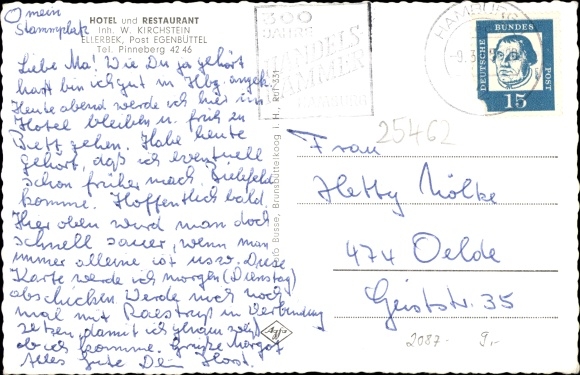 O mein
Stammplatz
HOTEL und RESTAURANT
Inh. W. KIRCHSTEIN
ELLERBEK, Post EGENBÜTTEL
Tel. Pinneberg 42 46
Liebe Ma! Wie Du ja gehört
hast bin ich gut in Hbg. angek.
Heute abend werde ich hier im
Hotel bleiben u. früh zu
Bett gehen. Habe heute
gehört, daß ich eventuell
schon früher nach Bielefeld
komme. Hoffentlich bald.
Hier oben wird man doch
schnell sauer, wenn man
immer alleine ist usw. Diese
Karte werde ich morgen (Dienstag)
abschicken. Werde mich noch
mal mit Raestrup in Verbindung
setzen, damit ich genau weiß
ob ich komme. Grüße Margot
Alles Gute Dein Horst.
Busse, Brunsbüttelkoog i. H., Ruf 331
Agfa
300
JAHRE
HANDELS
KAMMER
HAMBURG
HAMBURG
-9.3
DEUTSCHE BUNDESPOST
15
25462
Frau
Hetty Nölke
474 Oelde
Geiststr. 35
2087- 9,-